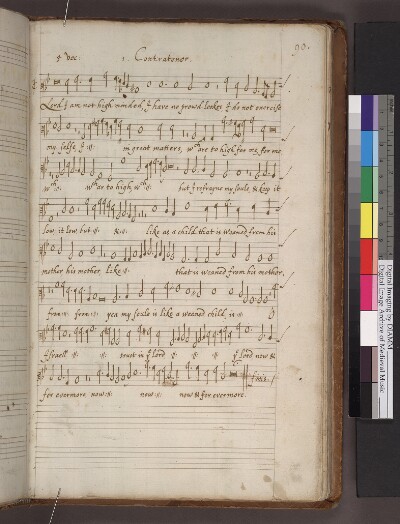 5 voc: 1. Contratenor.
Lord I am not high minded, I have no prowd lookes I do not exercise
my selfe I :||: in great matters, wch are to high for me for me
wch :||: wch are to high, wch :||: but I refrayne my soule, & keep it
low, it low, but :||: & :||: like as a child that is weaned from his
mother his mother, like :||: that is weaned from his mother,
from :||: from :||: yea my soule is like a weaned child, is :||:
O Israell :||: :||: trust in ye lord :||: :||: :||: ye lord now &
for evermore, now :||: now :||: now & for evermore.
finis.
Digital Imaging by DIAMM
Digital Image Archive of Medieval Music